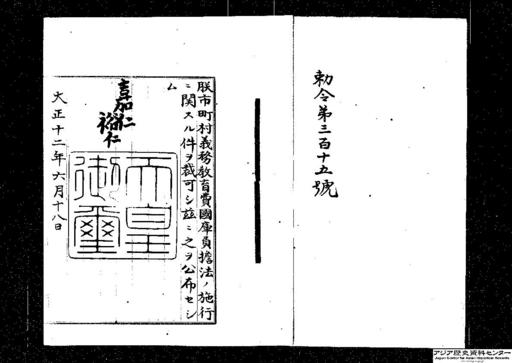 勅令第三百十五號
朕市町村義務教育費國庫負擔法ノ施行
ニ關スル件ヲ裁可シ茲ニ之ヲ公布セシ
ム
嘉仁
裕仁
天皇
御璽
大正十二年六月十八日
アジア歴史資料センター
Japan Center for Asian Historical Records